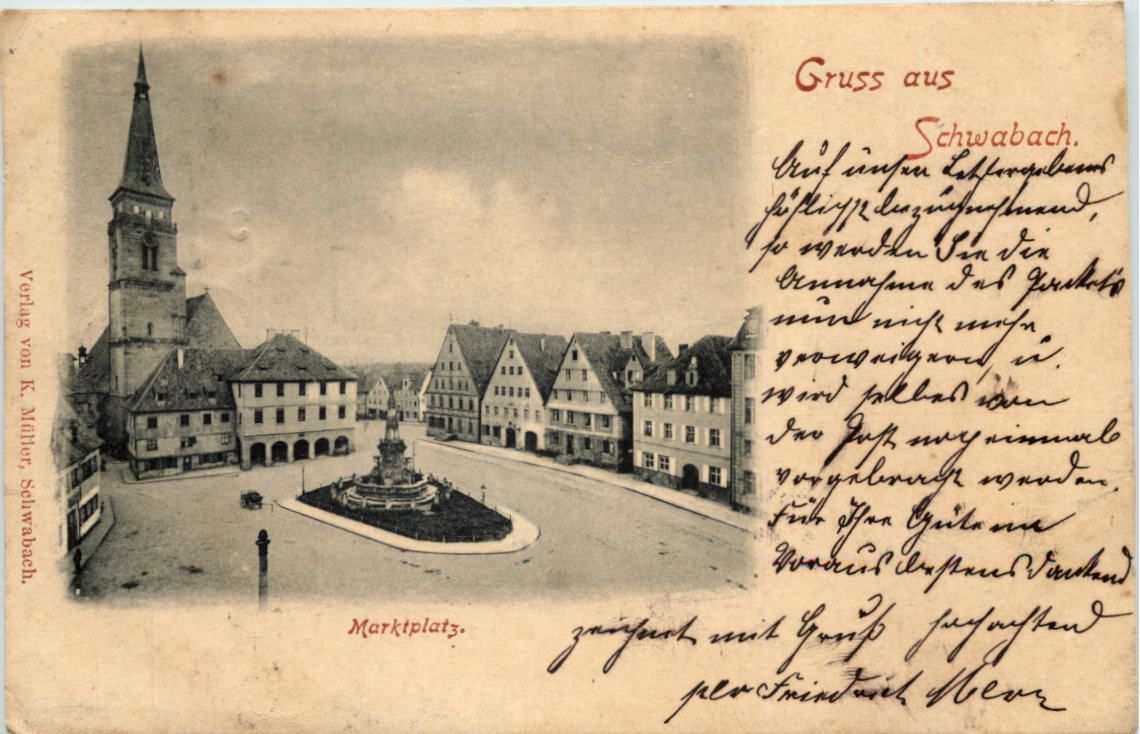 Gruss aus
Schwabach.
Auf unser Letztergebenes
höflichst bezugnehmend,
so werden Sie die
Annahme des Packet's
nun nicht mehr
verweigern, u.
wird selbes von
der Post nocheinmal
vorgebracht werden.
Für Ihre Güte im
Voraus bestens dankend
zeichnet mit Gruß hochachtend
per Friedrich Merz
Marktplatz.
Verlag von K. Müller, Schwabach.